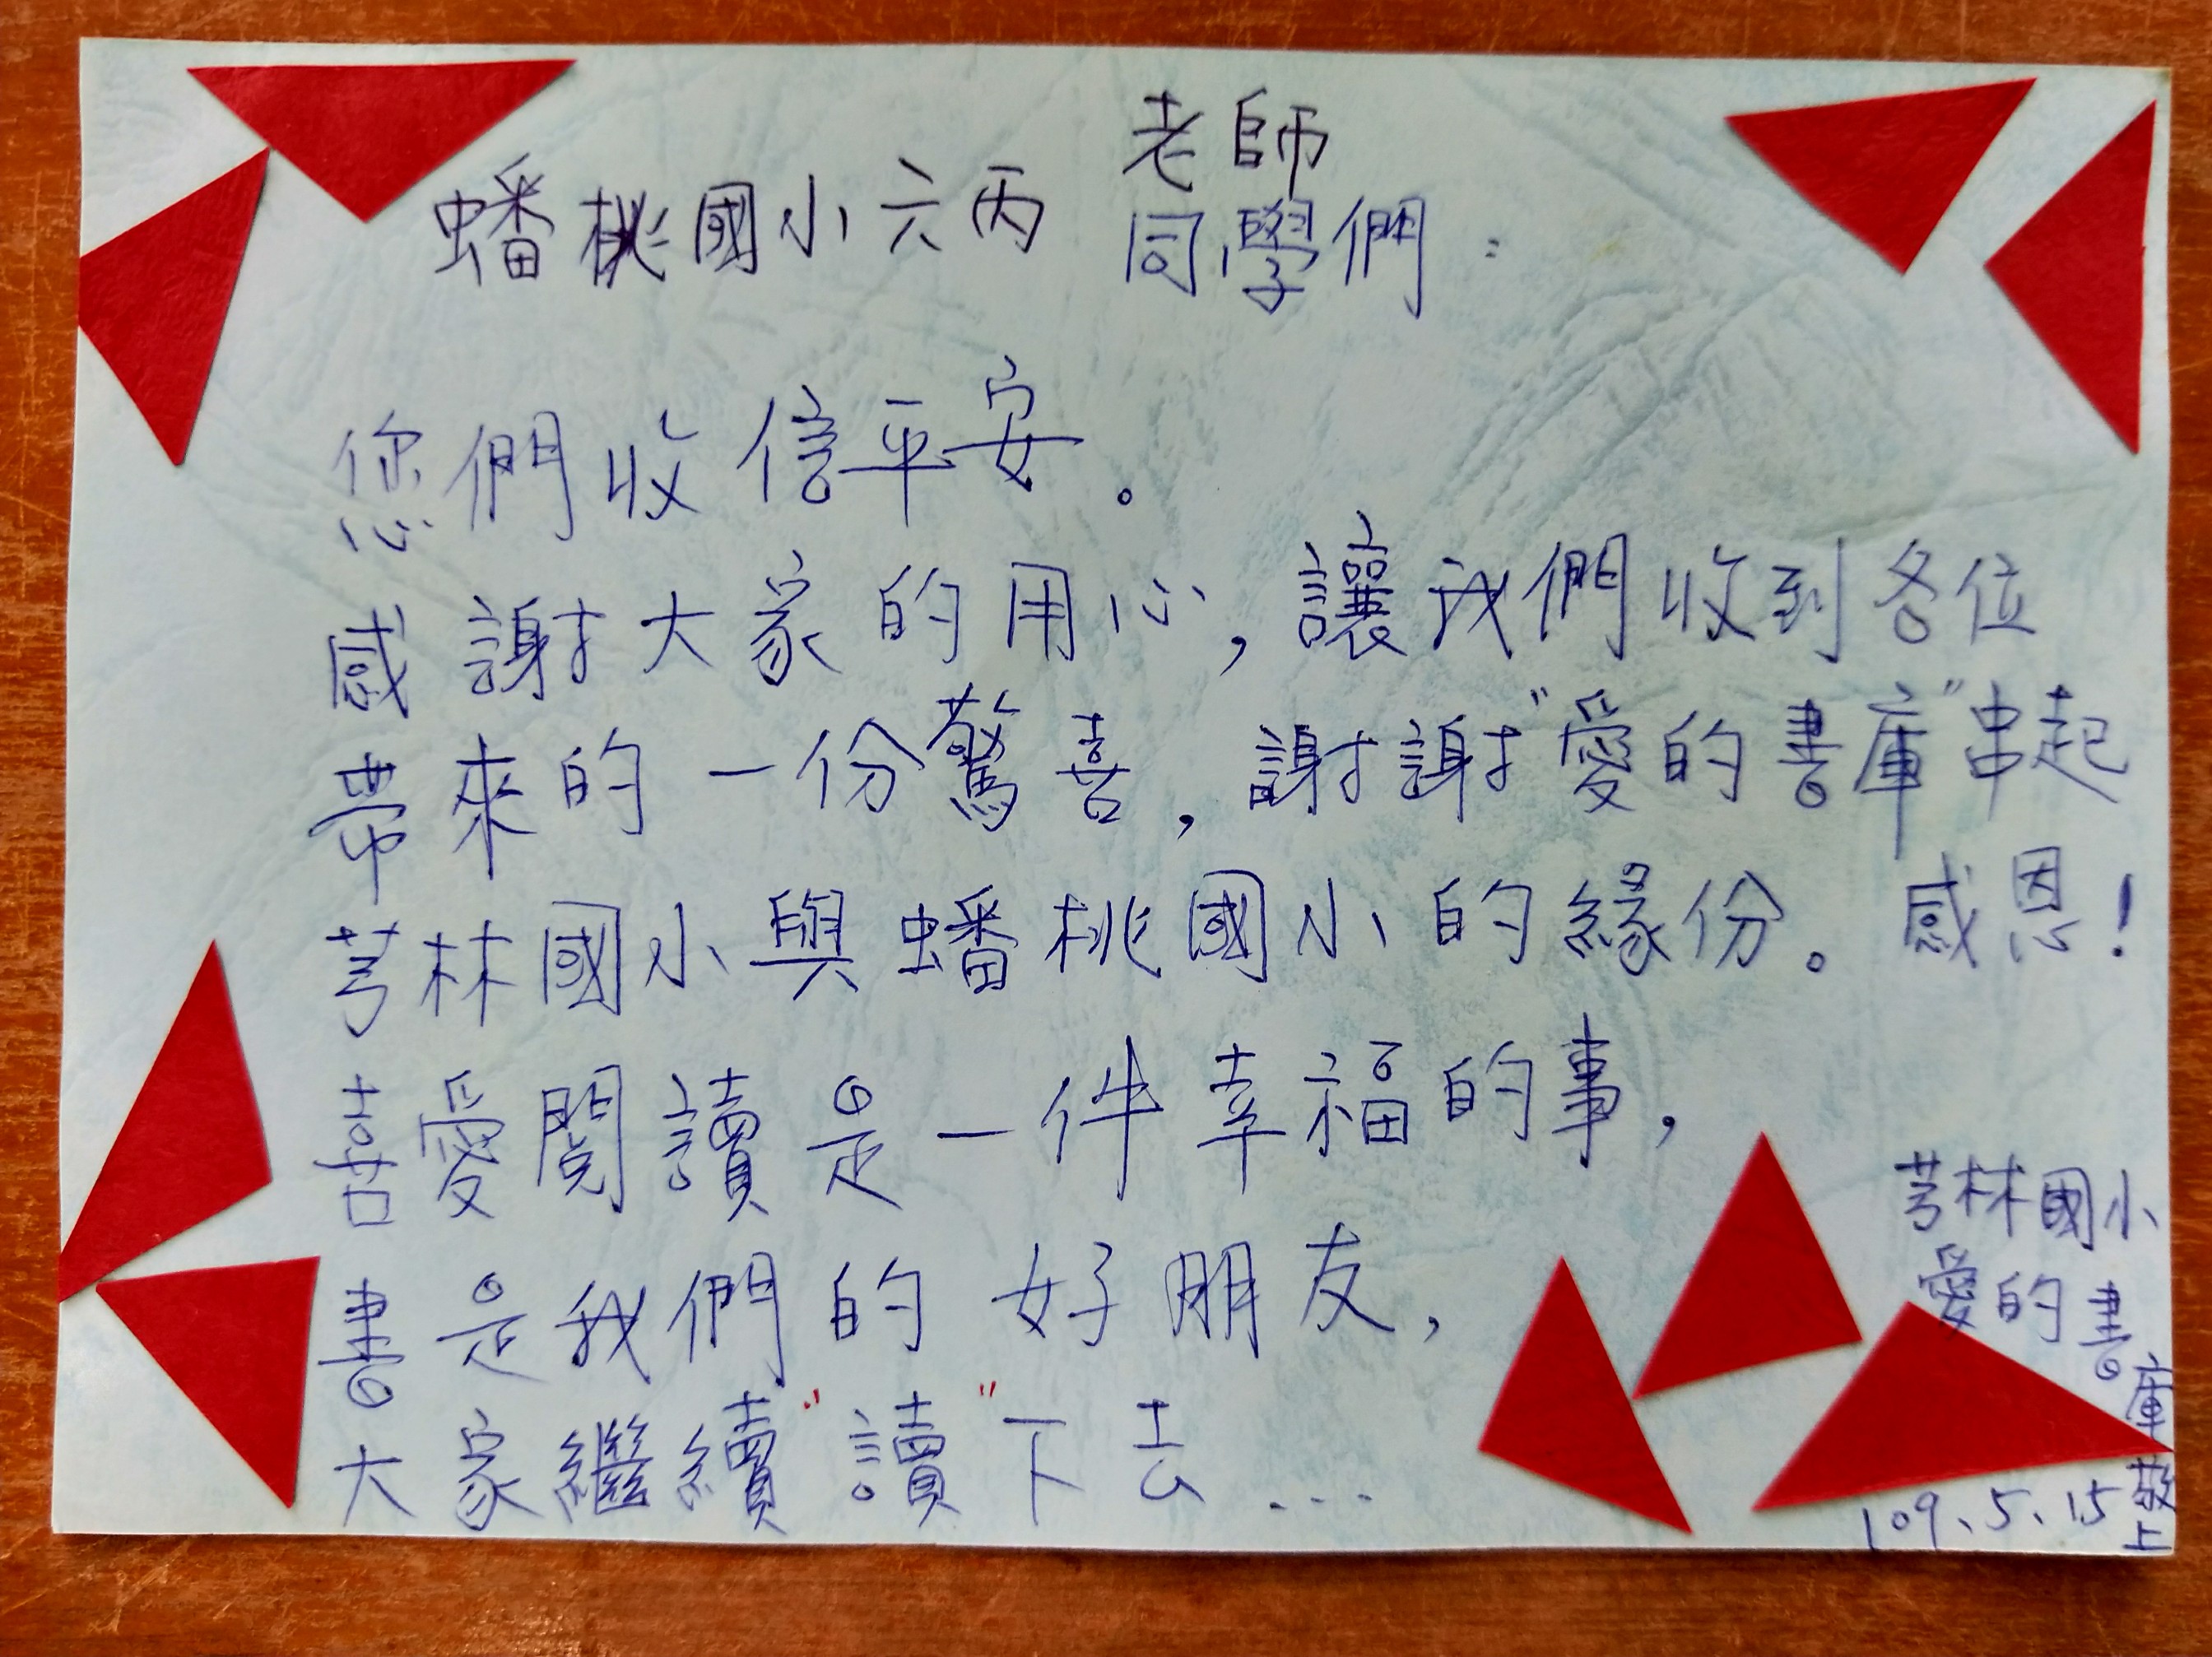 老師
蟠桃國小六丙
同學們：
您們收信平安。
感謝大家的用心，讓我們收到各位
帶來的一份驚喜，謝謝"愛的書庫"串起
芎林國小與蟠桃國小的緣份。感恩！
喜愛閱讀是一件幸福的事，
書是我們的好朋友，
大家繼續"讀"下去...
芎林國小
愛的書
庫敬上
109、5、15